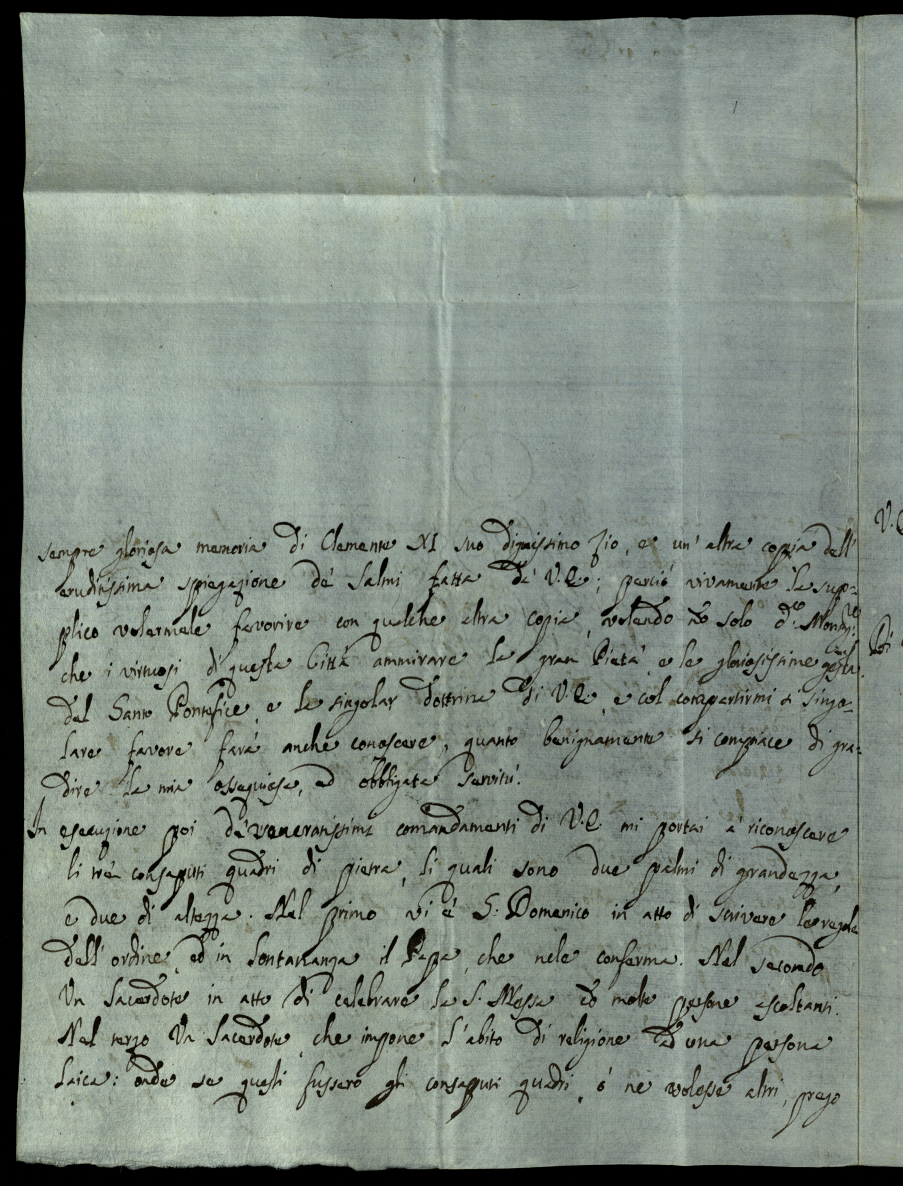 sempre gloriosa memoria di Clemente XI suo dignissimo Zio, e un' altra coppia dell'
eruditissima spiegazione de' Salmi fatta da V.E.; perciò vivamente la sup-
plico volermele favorire con qualche altra copia, volendo no solo d.º Monsig.re
che i virtuosi di questa Città ammirare la gran Pietà, e le gloriosissime gesta
del Santo Pontefice, e la singolar dottrina di V.E., e col compartirmi sì singo-
lare favore farà anche conoscere, quanto benignamente si compiace di gra-
dire la mia ossequiosa, ed obbligata servitù.
In esecuzione poi de' veneratissimi comandamenti di V.E. mi portai a riconoscere
li trè consaputi quadri di pietra, li quali sono due palmi di grandezza,
e due di altezza. Nel primo vi è S. Domenico in atto di scrivere le regole
dell' ordine, ed in lontananza il Papa, che nele conferma. Nel secondo
Un Sacerdote in atto di celebrare la S. Messa co molte persone ascoltanti.
Nel terzo Un Sacerdote, che impone l'abito di religione ad una persona
laica: onde se questi fussero gli consaputi quadri, ò ne volesse altri, prego
V.E.